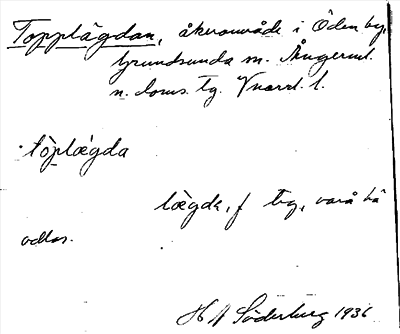 Topplägdan, åkerområde i Öden by,
Grundsunda sn. Ångerml.
n. doms. tg. Vnorrl. l.
tòplægda
lægdε, f teg, varå bä
odlas.
H A Söderberg 1936